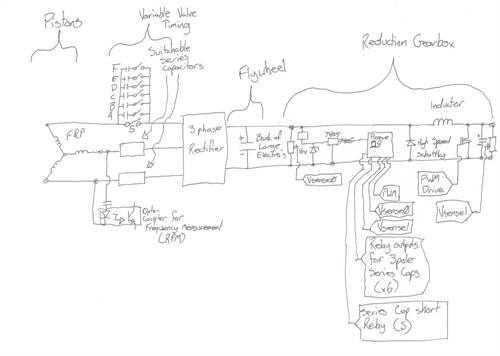 Pistons
Variable Valve
Timing
Suitchable
Series
Capacitors
F
E
D
C
B
A
S
F&P
3 phase
Rectifier
Flywheel
Bank of
Large
Electro's
Reduction Gearbox
Inductor
High Speed
Schottky
PWM
Vsense0
Vsense1
PWM
Drive
Vsense1
Vsense0
Opto-
Coupler for
Frequency Measurement
(RPM)
Relay outputs
for 3pole
Series Caps
(x6)
Series Cap short
Relay (S)